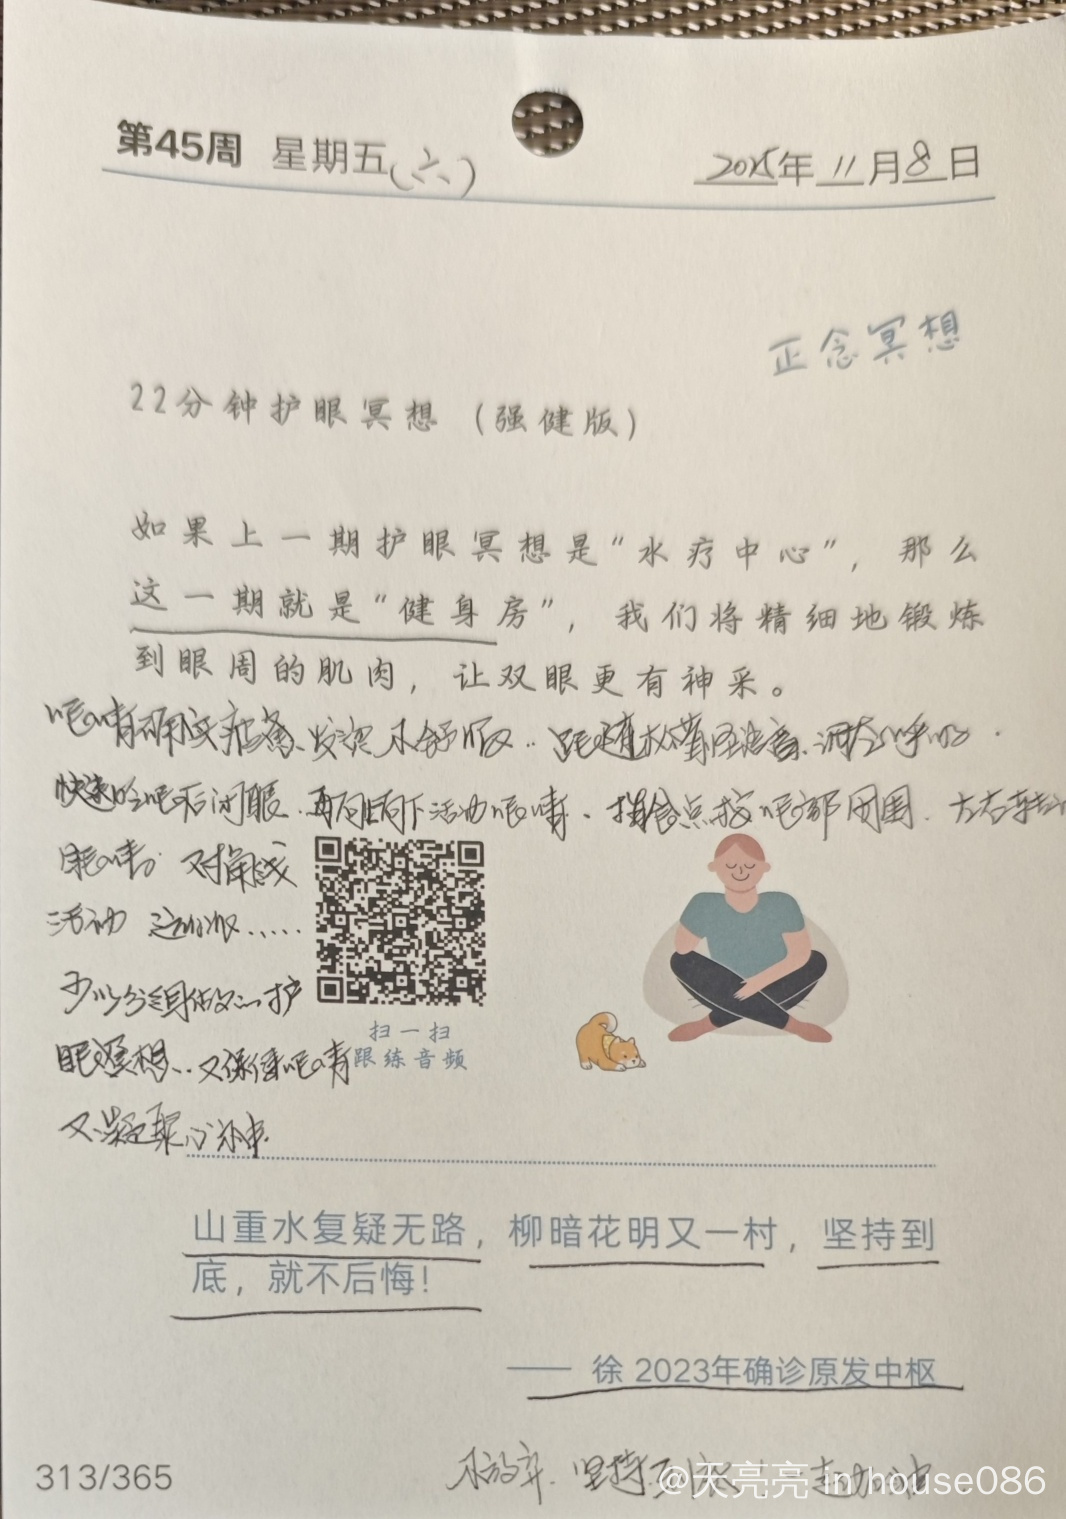 第45周 星期五(六) 2025年11月8日
正念冥想
22分钟护眼冥想（强健版）
如果上一期护眼冥想是“水疗中心”，那么
这一期就是“健身房”，我们将精细地锻炼
到眼周的肌肉，让双眼更有神采。
眼睛 疲惫、发涩不舒服
快速眨眼后闭眼 再向上向下活动眼睛、指腹点按眼部周围. 左右转动
眼睛 对角线
活动 ......
可以分组做 护
眼冥想.. 又保健眼睛
又凝聚心神
扫一扫
跟练音频
山重水复疑无路，柳暗花明又一村，坚持到
底，就不后悔！
—— 徐 2023年确诊原发中枢
313/365
不放弃. 坚持到底！一起加油
@天亮亮 in house086